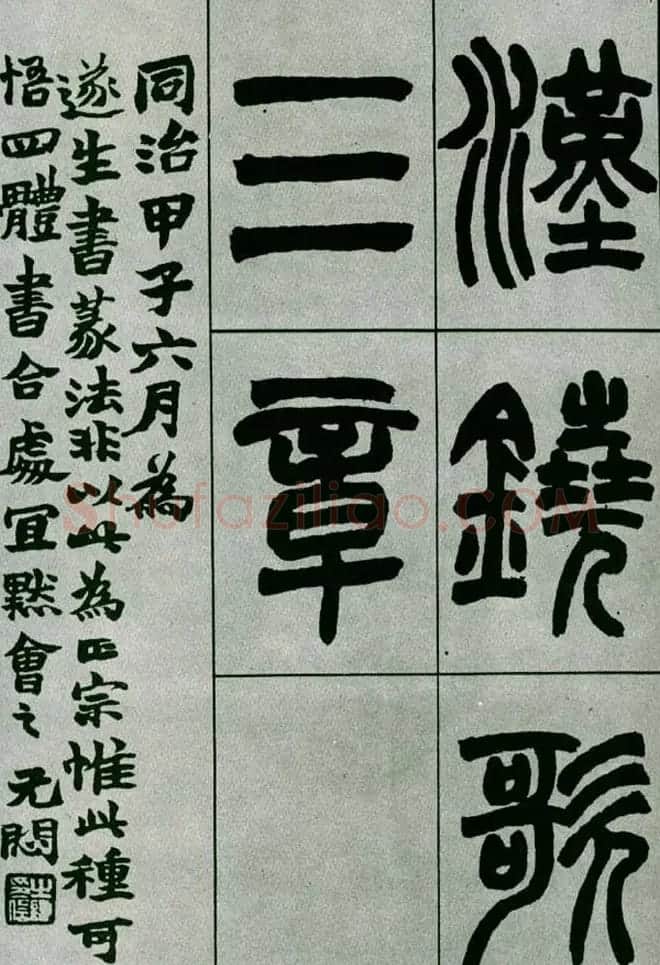 漢鐃歌
三章
同治甲子六月為
遂生書篆法非以此為正宗惟此種可
悟四體書合處宜默會之 无悶
Shufaziliao.COM